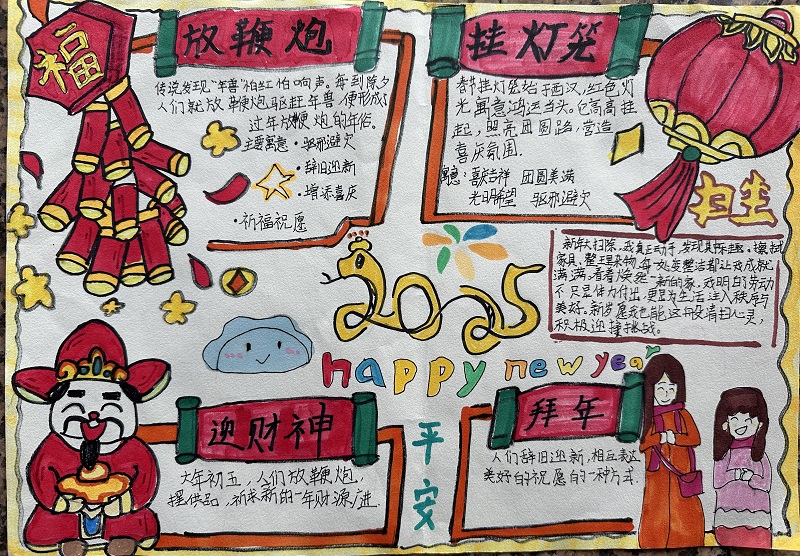 福
放鞭炮
传说发现"年兽"怕红怕响声。每到除夕
人们就放鞭炮驱赶年兽,便形成了
过年放鞭炮的年俗。
主要寓意·驱邪避灾
·辞旧迎新
·增添喜庆
·祈福祝愿
挂灯笼
春节挂灯笼始于西汉,红色灯
光寓意鸿运当头。它高高挂
起,照亮团圆路,营造
喜庆氛围.
寓意:喜庆吉祥 团圆美满
光明希望 驱邪避灾
扫尘
新年大扫除,我真正动手,发现其乐趣。擦拭
家具、整理杂物,每一处变整洁都让我成就
满满,看着焕然一新的家,我明白了劳动
不只是体力付出,更是为生活注入秩序与
美好。新岁愿我也能这般清扫心灵,
积极迎接挑战。
2025
happy new year
迎财神
大年初五,人们放鞭炮,
摆供品,祈求新的一年财源广进.
平安
拜年
人们辞旧迎新,相互表达
美好的祝愿的一种方式.